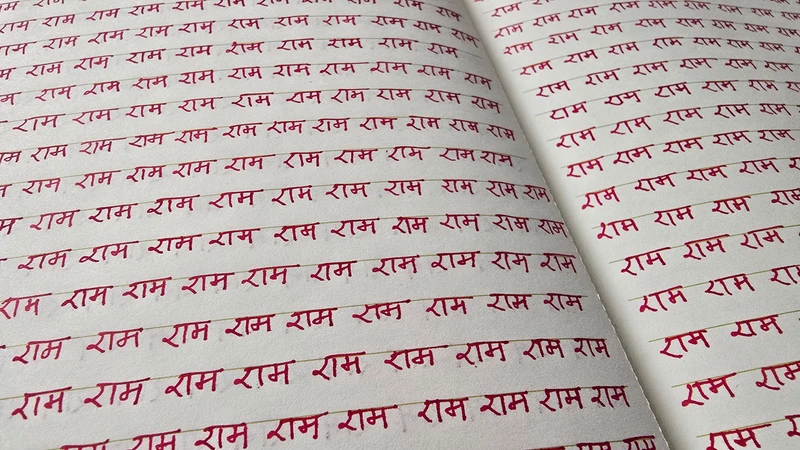 राम राम राम राम राम राम राम राम राम राम
राम राम राम राम राम राम राम राम राम राम
राम राम राम राम राम राम राम राम राम राम
राम राम राम राम राम राम राम राम राम राम
राम राम राम राम राम राम राम राम राम राम
राम राम राम राम राम राम राम राम राम राम
राम राम राम राम राम राम राम राम राम राम राम
राम राम राम राम राम राम राम राम राम राम
राम राम राम राम राम राम राम राम राम राम
राम राम राम राम राम राम राम राम राम राम
राम राम राम राम राम राम राम राम राम राम
राम राम राम राम राम राम राम राम राम
राम राम राम राम राम राम राम राम राम
राम राम राम राम राम राम राम राम राम
राम राम राम राम राम राम राम
राम राम राम राम राम राम
राम राम राम राम राम राम राम
राम राम राम राम राम राम राम
राम राम राम राम राम राम राम
राम राम राम राम राम राम
राम राम राम राम राम
राम राम राम राम राम
राम राम राम राम राम
राम राम राम राम
राम राम राम राम
राम राम राम
राम राम राम
राम राम
राम राम
राम